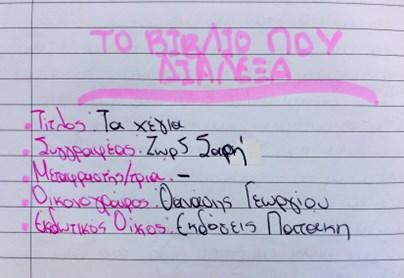 ΤΟ ΒΙΒΛΙΟ ΠΟΥ
ΔΙΑΛΕΞΑ
Τίτλος: Τα χέγια
Συγγραφέας: Ζωρζ Σαρή
Μεταφραστής/τρια: –
Εικονογράφος: Θανάσης Γεωργίου
Εκδοτικός Οίκος: Εκδόσεις Πατάκη